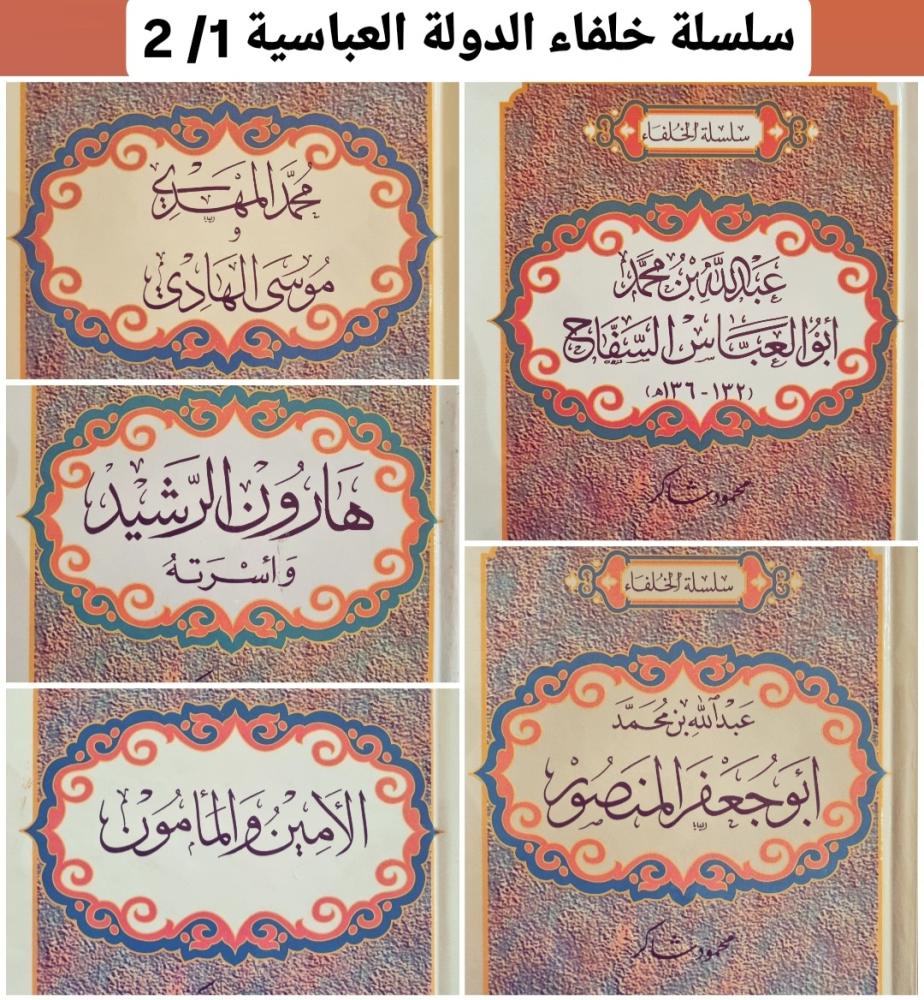 سلسلة خلفاء الدولة العباسية 1/ 2
سلسلة الخلفاء
عبد الله بن محمد
أبو العباس السفاح
(١٣٢ - ١٣٦هـ)
محمود شاكر
محمد المهدي
و
موسى الهادي
هارون الرشيد
وأسرته
سلسلة الخلفاء
عبد الله بن محمد
أبو جعفر المنصور
محمود شاكر
الأمين والمأمون